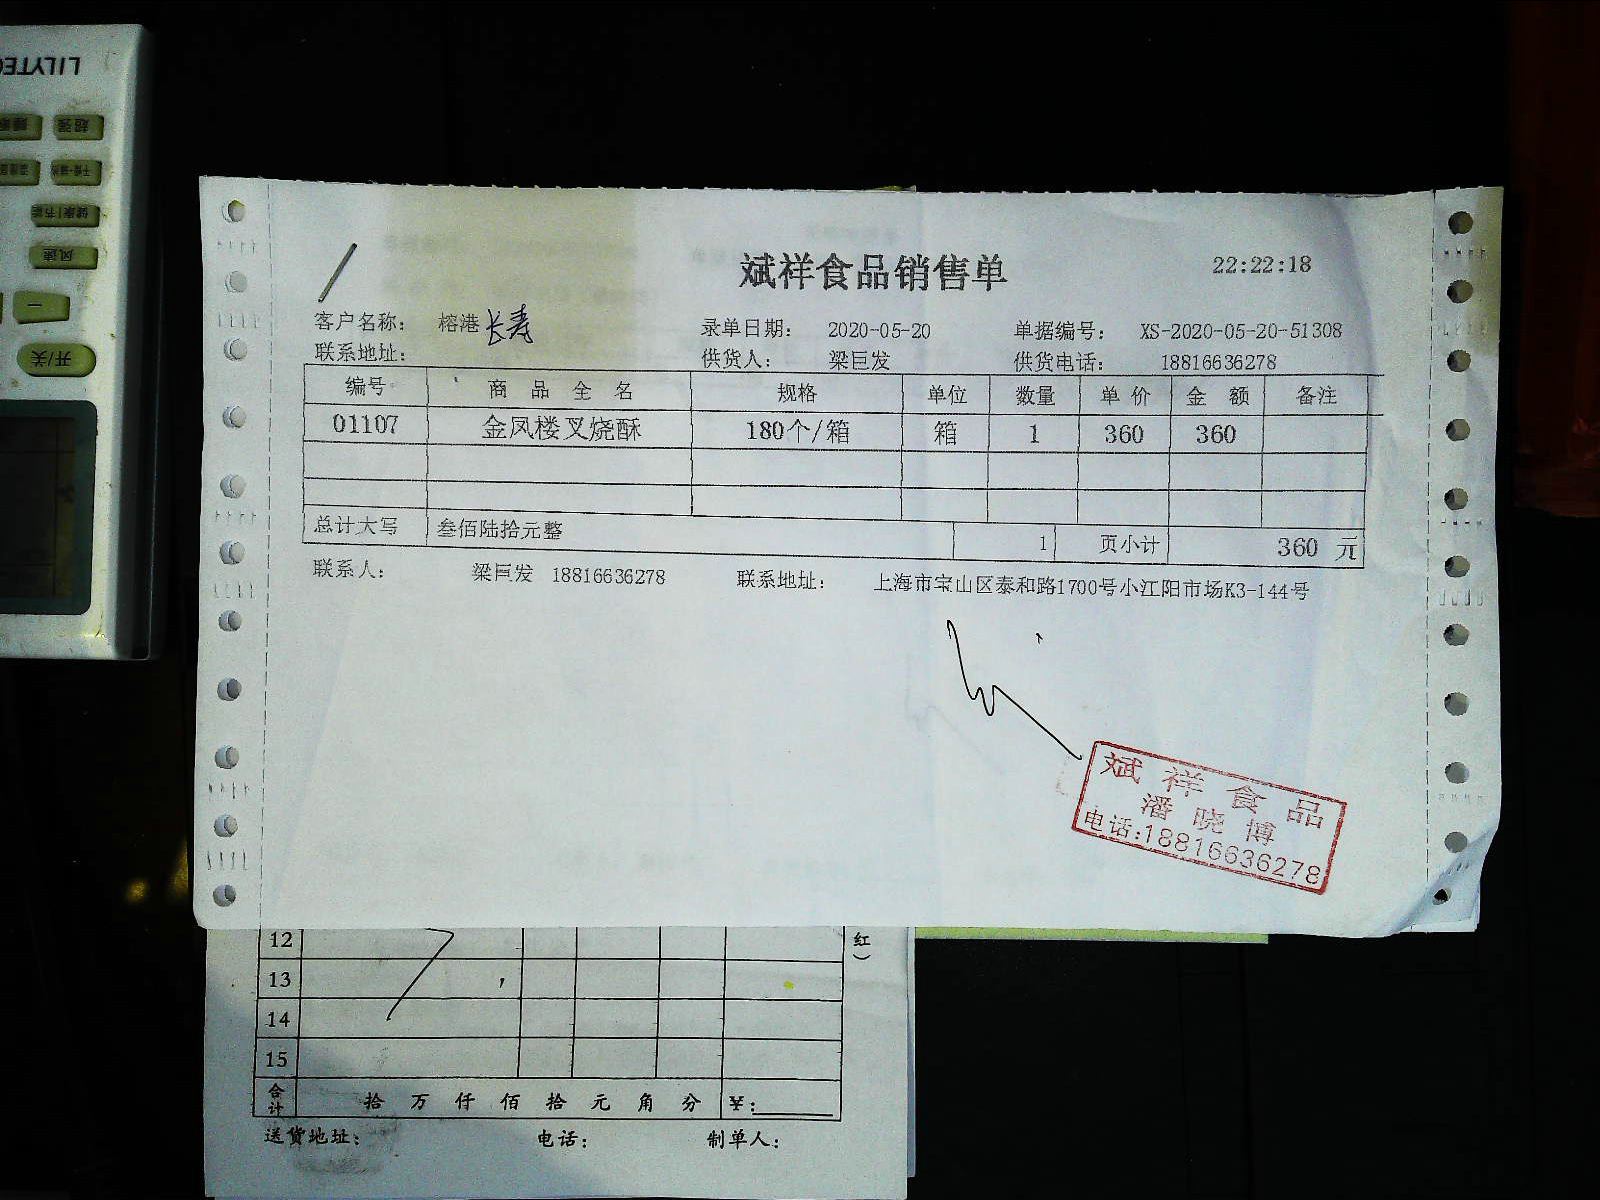 LILYTEC
超强
风速
一
开/关
斌祥食品销售单
22:22:18
客户名称： 榕港 长寿
录单日期： 2020-05-20
单据编号： XS-2020-05-20-51308
联系地址：
供货人： 梁巨发
供货电话： 18816636278
编号 商品全名 规格 单位 数量 单价 金额 备注
01107 金凤楼叉烧酥 180个/箱 箱 1 360 360
总计大写 叁佰陆拾元整 1 页小计 360 元
联系人： 梁巨发 18816636278 联系地址： 上海市宝山区泰和路1700号小江阳市场K3-144号
斌祥食品
潘晓博
电话:18816636278
12
红）
13
14
15
合计 拾 万 仟 佰 拾 元 角 分 ¥:
送货地址: 电话: 制单人: